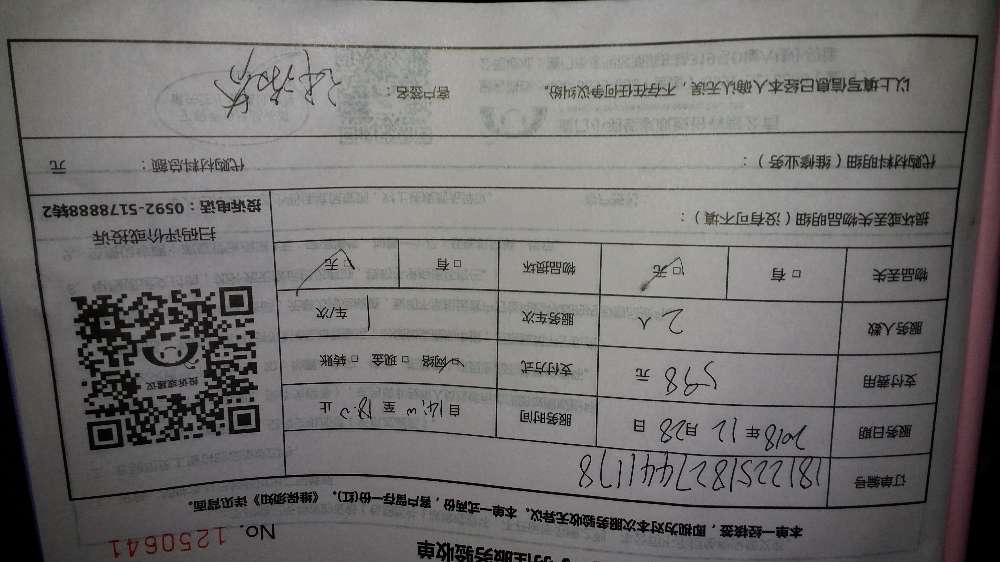 住服务验收单
No. 1250641
本单一经接签，即视为对本次服务验收无异议。本单一式两份，客户留存一份(红)。《维保须知》详见背面。
订单编号 181225182744178
服务日期 2018年12月28日 服务时间 自14:00至18:00止
支付费用 598元 支付方式 □网络 □现金 □转账
服务人数 2人 服务车次 1车/次
物品丢失 □有 □无 物品损坏 □有 □无
投诉或建议
扫码评价或投诉
投诉电话：0592-5178888转2
损坏或丢失物品明细（没有可不填）：
代购材料明细（维修业务）： 代购材料总额： 元
以上填写信息已经本人确认无误，不存在任何争议纠纷。 客户签名：